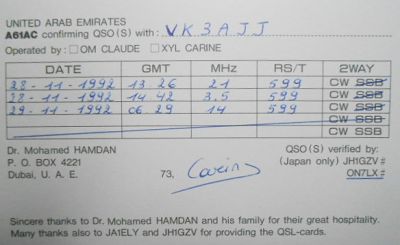 UNITED ARAB EMIRATES
A61AC confirming QSO(S) with: VK3AJJ
Operated by: □ OM CLAUDE □ XYL CARINE
DATE GMT MHz RS/T 2WAY
28-11-1992 13.26 21 599 CW SSB
28-11-1992 14.42 3.5 599 CW SSB
29-11-1992 06.29 14 599 CW SSB
CW SSB
Dr. Mohamed HAMDAN QSO(S) verified by:
P. O. BOX 4221 (Japan only) JH1GZV #
Dubai, U. A. E. 73, Carine ON7LX #
Sincere thanks to Dr. Mohamed HAMDAN and his family for their great hospitality.
Many thanks also to JA1ELY and JH1GZV for providing the QSL-cards.